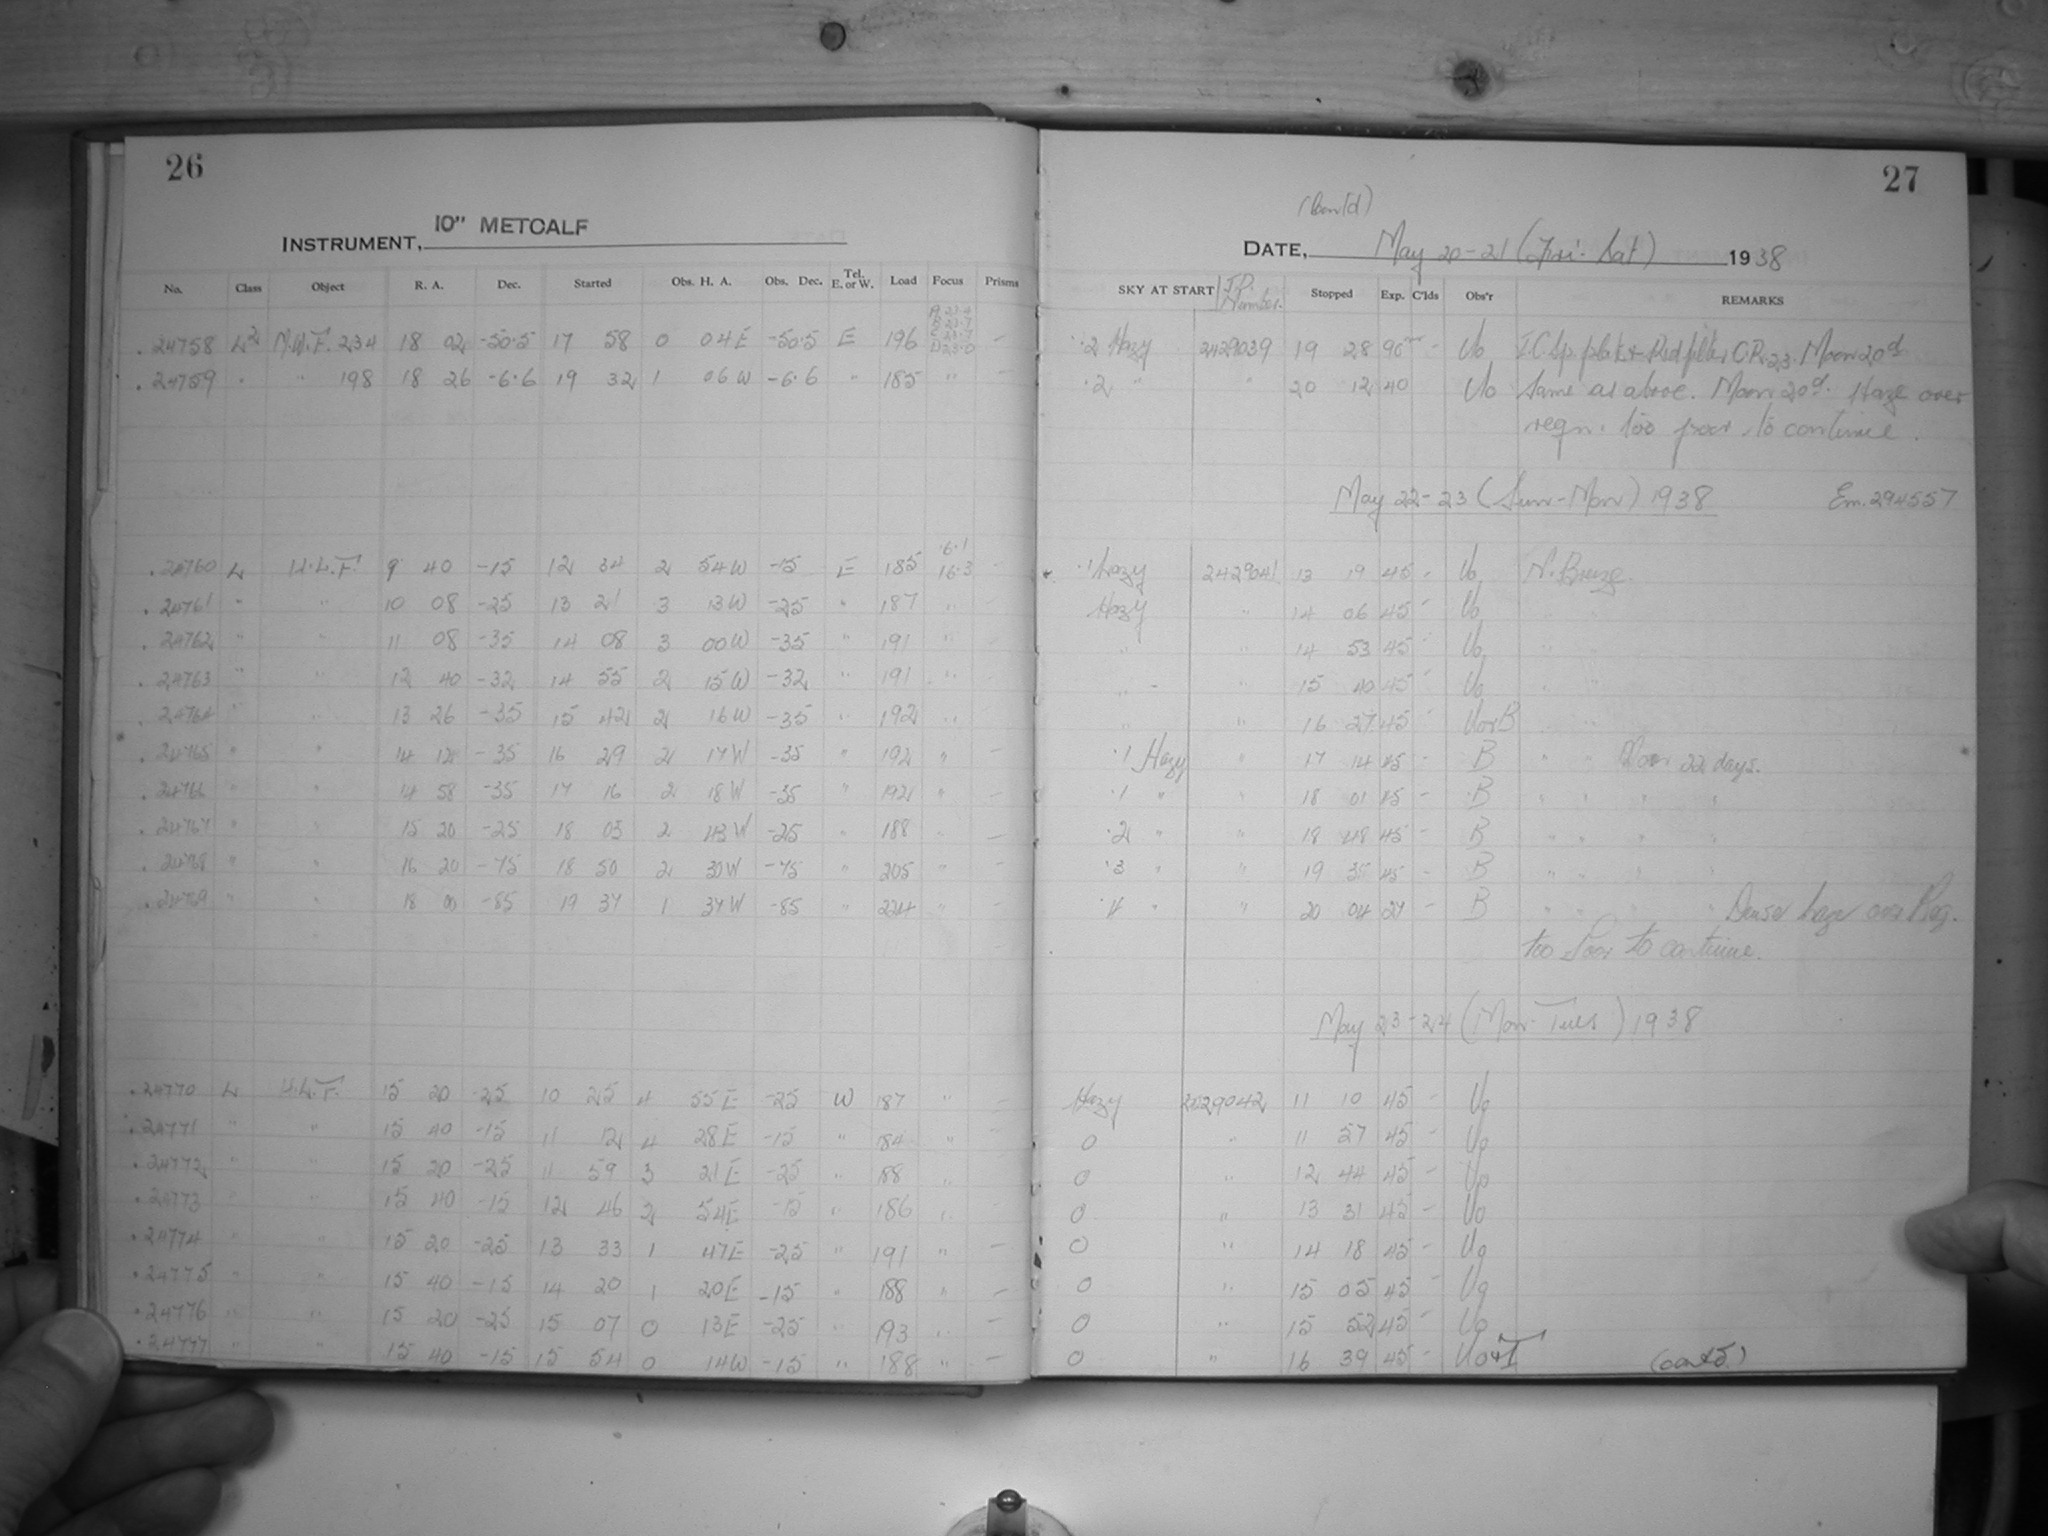 26
INSTRUMENT, 10" METCALF
No. Class Object R. A. Dec. Started Obs. H. A. Obs. Dec. Tel. E. or W. Load Focus Prisms
24758 M.W.F. 234 18 02 -50.5 17 58 0 04E -50.5 E 196
24759 " " 198 18 26 -6.6 19 32 1 06W -6.6 " 185 "
24760 L H.L.F. 9 40 -15 12 34 2 54W -15 E 185 16.3
24761 " " 10 08 -25 13 21 3 13W -25 " 187 "
24762 " " 11 08 -35 14 08 3 00W -35 " 191 "
24763 " " 12 40 -32 14 55 2 15W -32 " 191 "
24764 " " 13 26 -35 15 42 2 16W -35 " 192 "
24765 " " 14 12 -35 16 29 2 17W -35 " 192 " -
24766 " " 14 58 -35 17 16 2 18W -35 " 192 " -
24767 " " 15 20 -25 18 03 2 43W -25 " 188 " -
24768 " " 16 20 -75 18 50 2 30W -75 " 205 " -
24769 " " 18 00 -85 19 37 1 37W -85 " 224 " -
24770 L H.L.F. 15 20 -25 10 25 4 55E -25 W 187 " -
24771 " " 15 40 -15 11 12 4 28E -15 " 184 " -
24772 " " 15 20 -25 11 59 3 21E -25 " 188 " -
24773 " " 15 40 -15 12 46 2 54E -15 " 186 " -
24774 " " 15 20 -25 13 33 1 47E -25 " 191 " -
24775 " " 15 40 -15 14 20 1 20E -15 " 188 " -
24776 " " 15 20 -25 15 07 0 13E -25 " 193 " -
24777 " " 15 40 -15 15 54 0 14W -15 " 188 " -
27
(Cont'd)
DATE, May 20-21 (Fri-Sat) 1938
SKY AT START J.D. Number. Stopped Exp. C'lds Obs'r REMARKS
.2 Hazy 2429039 19 28 90 - Uo Red filter C.R. 23. Moon 20d
.2 " " 20 12 40 Uo Same as above. Moon 20d. Haze over
regn. too poor to continue.
May 22-23 (Sun-Mon) 1938 Em. 294557
.1 hazy 2429041 13 19 45 - Uo N. Breeze.
Hazy " 14 06 45 - Uo " "
" " 14 53 45 - Uo " "
" " 15 40 45 - Uo " "
" " 16 27 45 - Uo+B " "
.1 Hazy " 17 14 45 - B " " Moon 22 days.
.1 " " 18 01 45 - B " " " "
.2 " " 18 48 45 - B " " " "
.3 " " 19 35 45 - B " " " "
.4 " " 20 04 27 - B " " " " Dense haze over Reg.
too Poor to continue.
May 23-24 (Mon-Tues) 1938
Hazy 2429042 11 10 45 - Uo
0 " 11 57 45 - Uo
0 " 12 44 45 - Uo
0 " 13 31 45 - Uo
0 " 14 18 45 - Uo
0 " 15 05 45 - Uo
0 " 15 52 45 - Uo
0 " 16 39 45 - Uo+T (contd.)